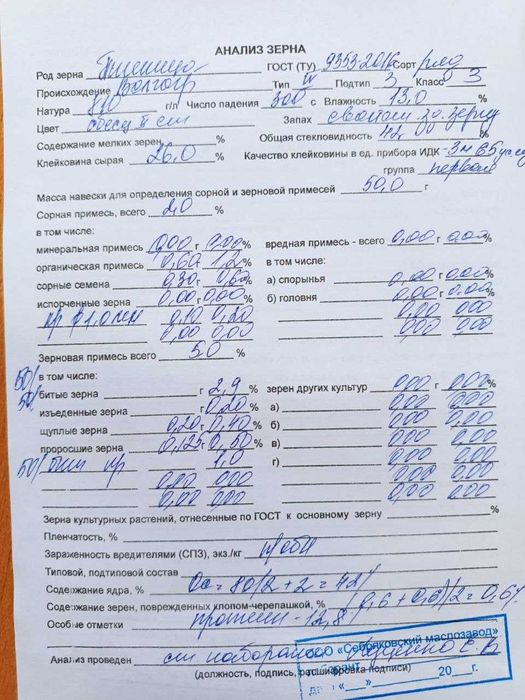 АНАЛИЗ ЗЕРНА
Род зерна Пшеница ГОСТ (ТУ) 9353-2016 Сорт ряд
Происхождение Волгогр Тип IV Подтип 3 Класс 3
Натура 810 г/л Число падения 300 с Влажность 13,0 %
Цвет Запах свойст. зд. зерну
Содержание мелких зерен % Общая стекловидность 42 %
Клейковина сырая 26,0 % Качество клейковины в ед. прибора ИДК
группа первая
Масса навески для определения сорной и зерновой примесей 50,0 г
Сорная примесь, всего 2,0 %
в том числе:
минеральная примесь 0,00 г 0,00 % вредная примесь - всего 0,00 г 0,00 %
органическая примесь 0,60 1,2 в том числе:
сорные семена 0,30 г 0,60 % а) спорынья 0,00 г 0,00 %
испорченные зерна 0,00 г 0,00 % б) головня 0,00 г 0,00 %
0,10 0,20 0,00 000
0,00 0,00 0,00 000
Зерновая примесь всего 5,0 %
50/ в том числе:
50/ битые зерна г 2,9 % зерен других культур 000 г 000 %
изъеденные зерна г 0,20 % а) 000 000
щуплые зерна 0,20 г 0,40 % б) 000 000
проросшие зерна 0,125 г 0,50 % в) 000 000
50/ 1,0 г) 000 000
0,00 000 0,00 000
0,00 000 0,00 000
Зерна культурных растений, отнесенные по ГОСТ к основному зерну %
Пленчатость, %
Зараженность вредителями (СПЗ), экз./кг н/обн
Типовой, подтиповой состав
Содержание ядра, % Ос = 80/2 + 2 = 42%
Содержание зерен, поврежденных клопом-черепашкой, %
Особые отметки протеин - 12,8
Анализ проведен
(должность, подпись, расшифровка подписи)
ООО «Себряковский маслозавод»
20 г.